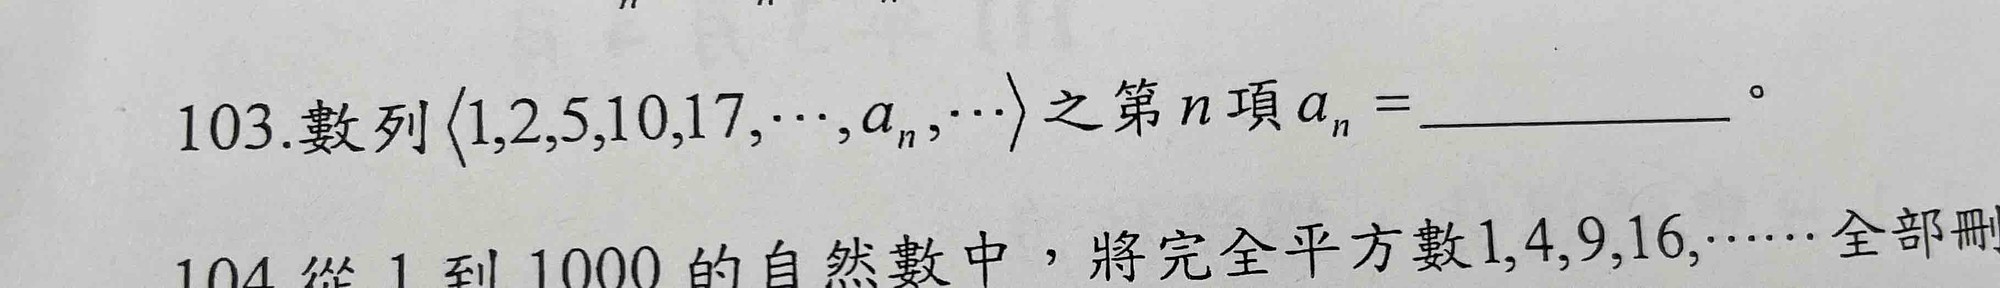 103.數列⟨1,2,5,10,17,⋯,aₙ,⋯⟩之第n項aₙ =＿＿＿＿＿。
104.從 1 到 1000 的自然數中，將完全平方數1,4,9,16,⋯⋯全部刪